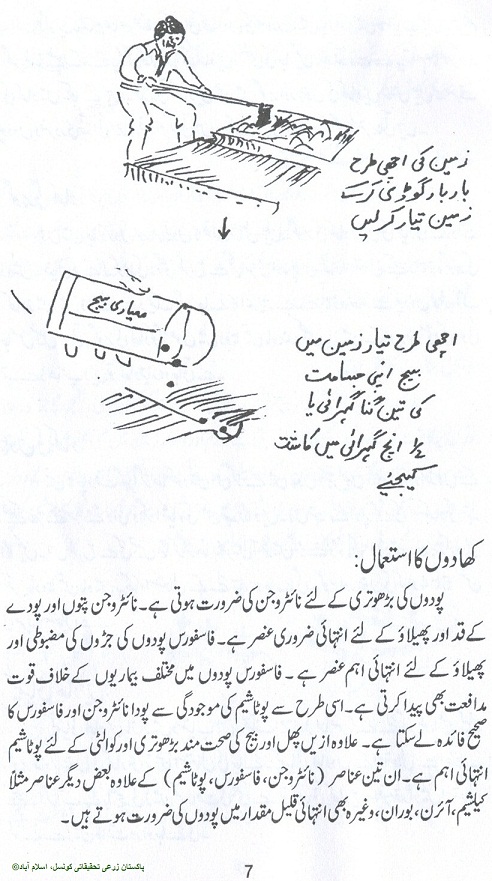 زمین کی اچھی طرح
بار بار گوڈی کر کے
زمین تیار کر لیں
معیاری بیج
اچھی طرح تیار زمین میں
بیج اپنی جسامت
کی تین گنا گہرائی یا
انچ گہرائی میں کاشت
کیجیے
کھادوں کا استعمال:
پودوں کی بڑھوتری کے لئے نائٹروجن کی ضرورت ہوتی ہے۔ نائٹروجن پتوں اور پودے
کے قد اور پھیلاؤ کے لئے انتہائی ضروری عنصر ہے۔ فاسفورس پودوں کی جڑوں کی مضبوطی اور
پھیلاؤ کے لئے انتہائی اہم عنصر ہے۔ فاسفورس پودوں میں مختلف بیماریوں کے خلاف قوت
مدافعت بھی پیدا کرتی ہے۔ اسی طرح سے پوٹاشیم کی موجودگی سے پودا نائٹروجن اور فاسفورس کا
صحیح فائدہ لے سکتا ہے۔ علاوہ ازیں پھل اور بیج کی صحت مند بڑھوتری اور کوالٹی کے لئے پوٹاشیم
انتہائی اہم ہے۔ ان تین عناصر (نائٹروجن، فاسفورس، پوٹاشیم) کے علاوہ بعض دیگر عناصر مثلاً
کیلشیم، آئرن، بوران، وغیرہ بھی انتہائی قلیل مقدار میں پودوں کی ضرورت ہوتے ہیں۔
پاکستان زرعی تحقیقاتی کونسل، اسلام آباد©
7